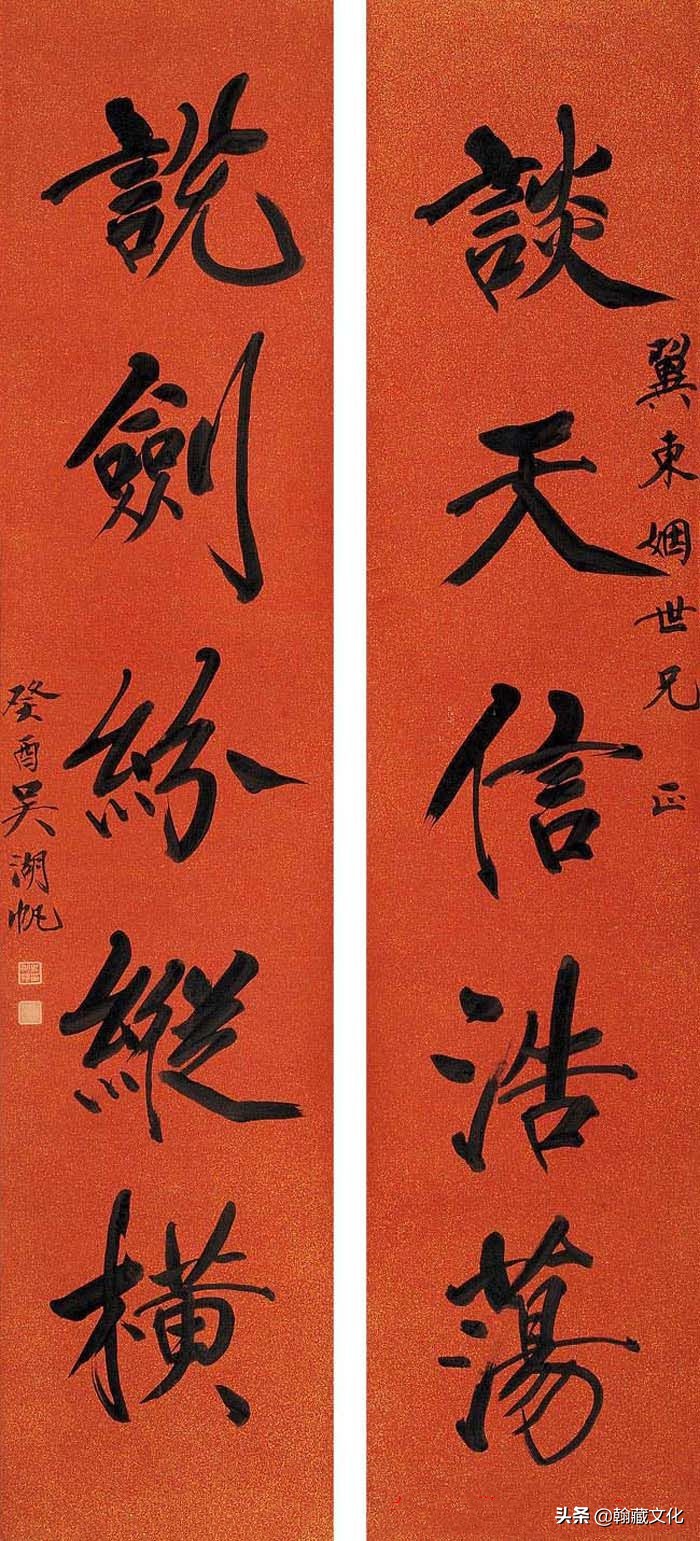 翼東姻世兄 正
談天信浩蕩
說劍紛縱橫
癸酉吳湖帆
头条 @翰藏文化